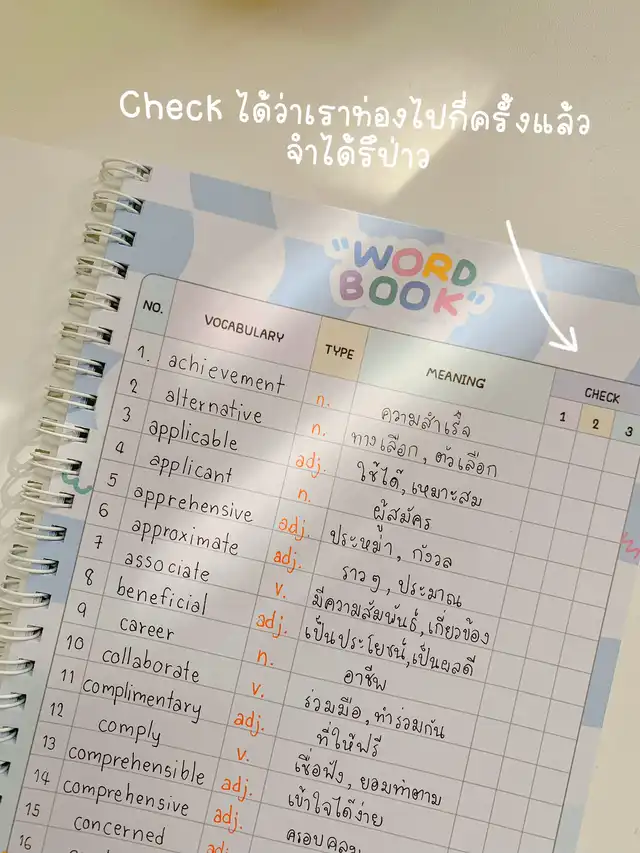 Check ได้ว่าเราท่องไปกี่ครั้งแล้ว
จำได้รึป่าว
"WORD
BOOK"
NO. VOCABULARY TYPE MEANING CHECK
1 2 3
1. achievement n. ความสำเร็จ
2 alternative n. ทางเลือก, ตัวเลือก
3 applicable adj. ใช้ได้, เหมาะสม
4 applicant n. ผู้สมัคร
5 apprehensive adj. ประหม่า, กังวล
6 approximate adj. ราวๆ, ประมาณ
7 associate v. มีความสัมพันธ์,เกี่ยวข้อง
8 beneficial adj. เป็นประโยชน์,เป็นผลดี
9 career n. อาชีพ
10 collaborate v. ร่วมมือ, ทำร่วมกัน
11 complimentary adj. ที่ให้ฟรี
12 comply v. เชื่อฟัง, ยอมทำตาม
13 comprehensible adj. เข้าใจได้ง่าย
14 comprehensive adj. ครอบคลุม
15 concerned adj.
16